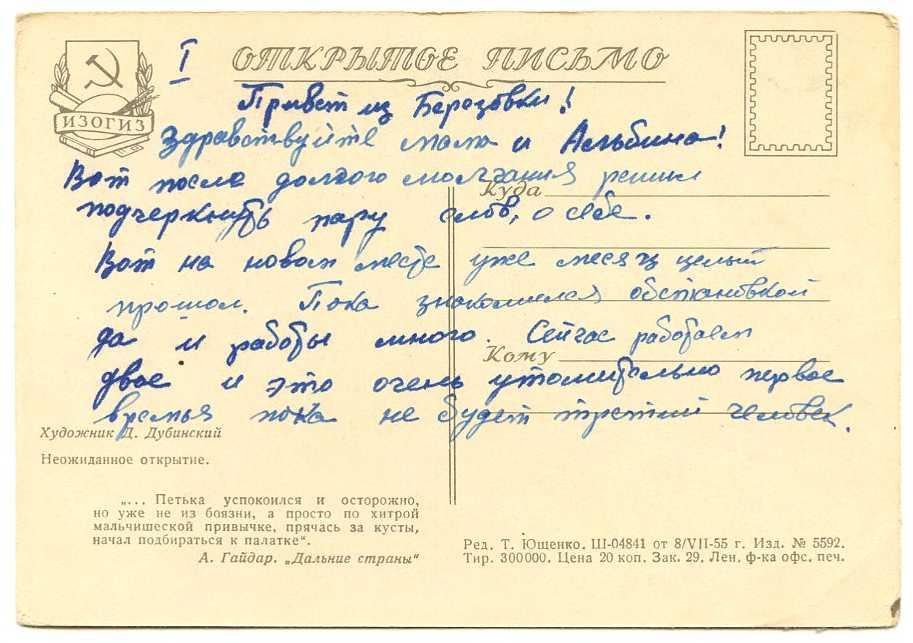 I
ОТКРЫТОЕ ПИСЬМО
ИЗОГИЗ
Привет из Березовки!
Здравствуйте мама и Альбина!
Вот после долгого молчания решил
Куда
подчеркнуть пару слов, о себе.
Вот на новом месте уже месяц целый
прошол. Пока знакомился обстановкой
да и работы много. Сейчас работаем
Кому
двое и это очень утомительно первое
времья пока не будет третий человек.
Художник Д. Дубинский
Неожиданное открытие.
„... Петька успокоился и осторожно,
но уже не из боязни, а просто по хитрой
мальчишеской привычке, прячась за кусты,
начал подбираться к палатке“.
А. Гайдар. „Дальние страны“
Ред. Т. Ющенко. Ш-04841 от 8/VII-55 г. Изд. № 5592.
Тир. 300000. Цена 20 коп. Зак. 29. Лен. ф-ка офс. печ.